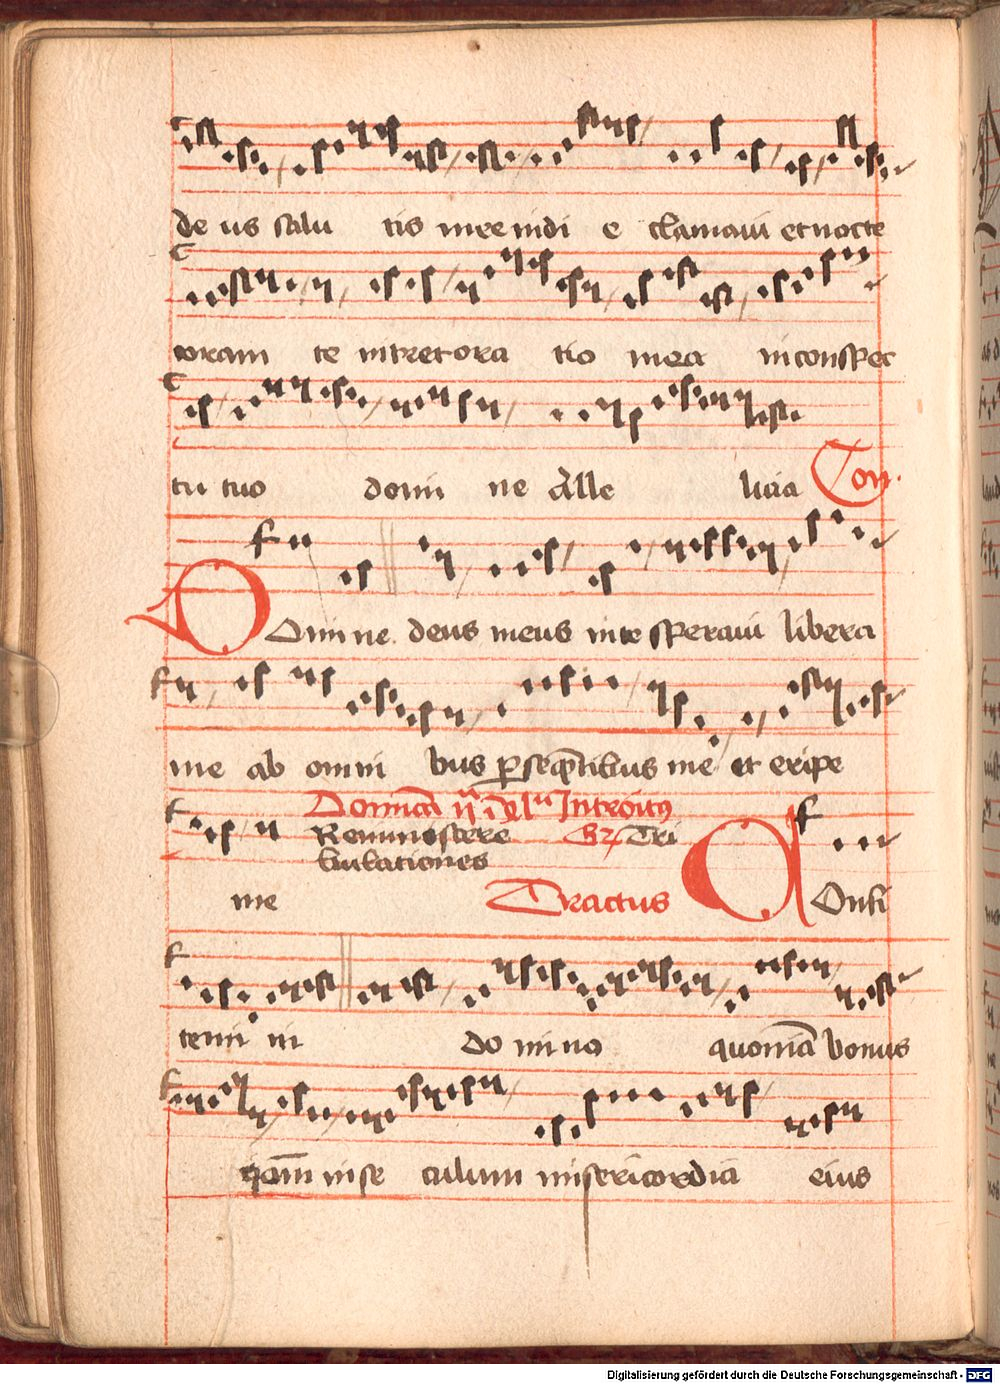 de us salu tis mee in di e clamaui et nocte
coram te intret ora tio mea in conspec
tu tuo domi ne Alle luia Con.
Domine deus meus in te speraui libera
me ab omni bus psequentibus me et eripe
Dominica ii Introitus
Reminiscere Tri
bulationes
me Tractus Confi
temi ni do mino quoniam bonus
quoniam in se culum misericordia eius
Digitalisierung gefördert durch die Deutsche Forschungsgemeinschaft - DFG